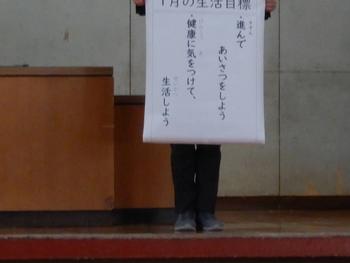 1月の生活目標
・進んで
あいさつをしよう
・健康に気をつけて、
生活しよう